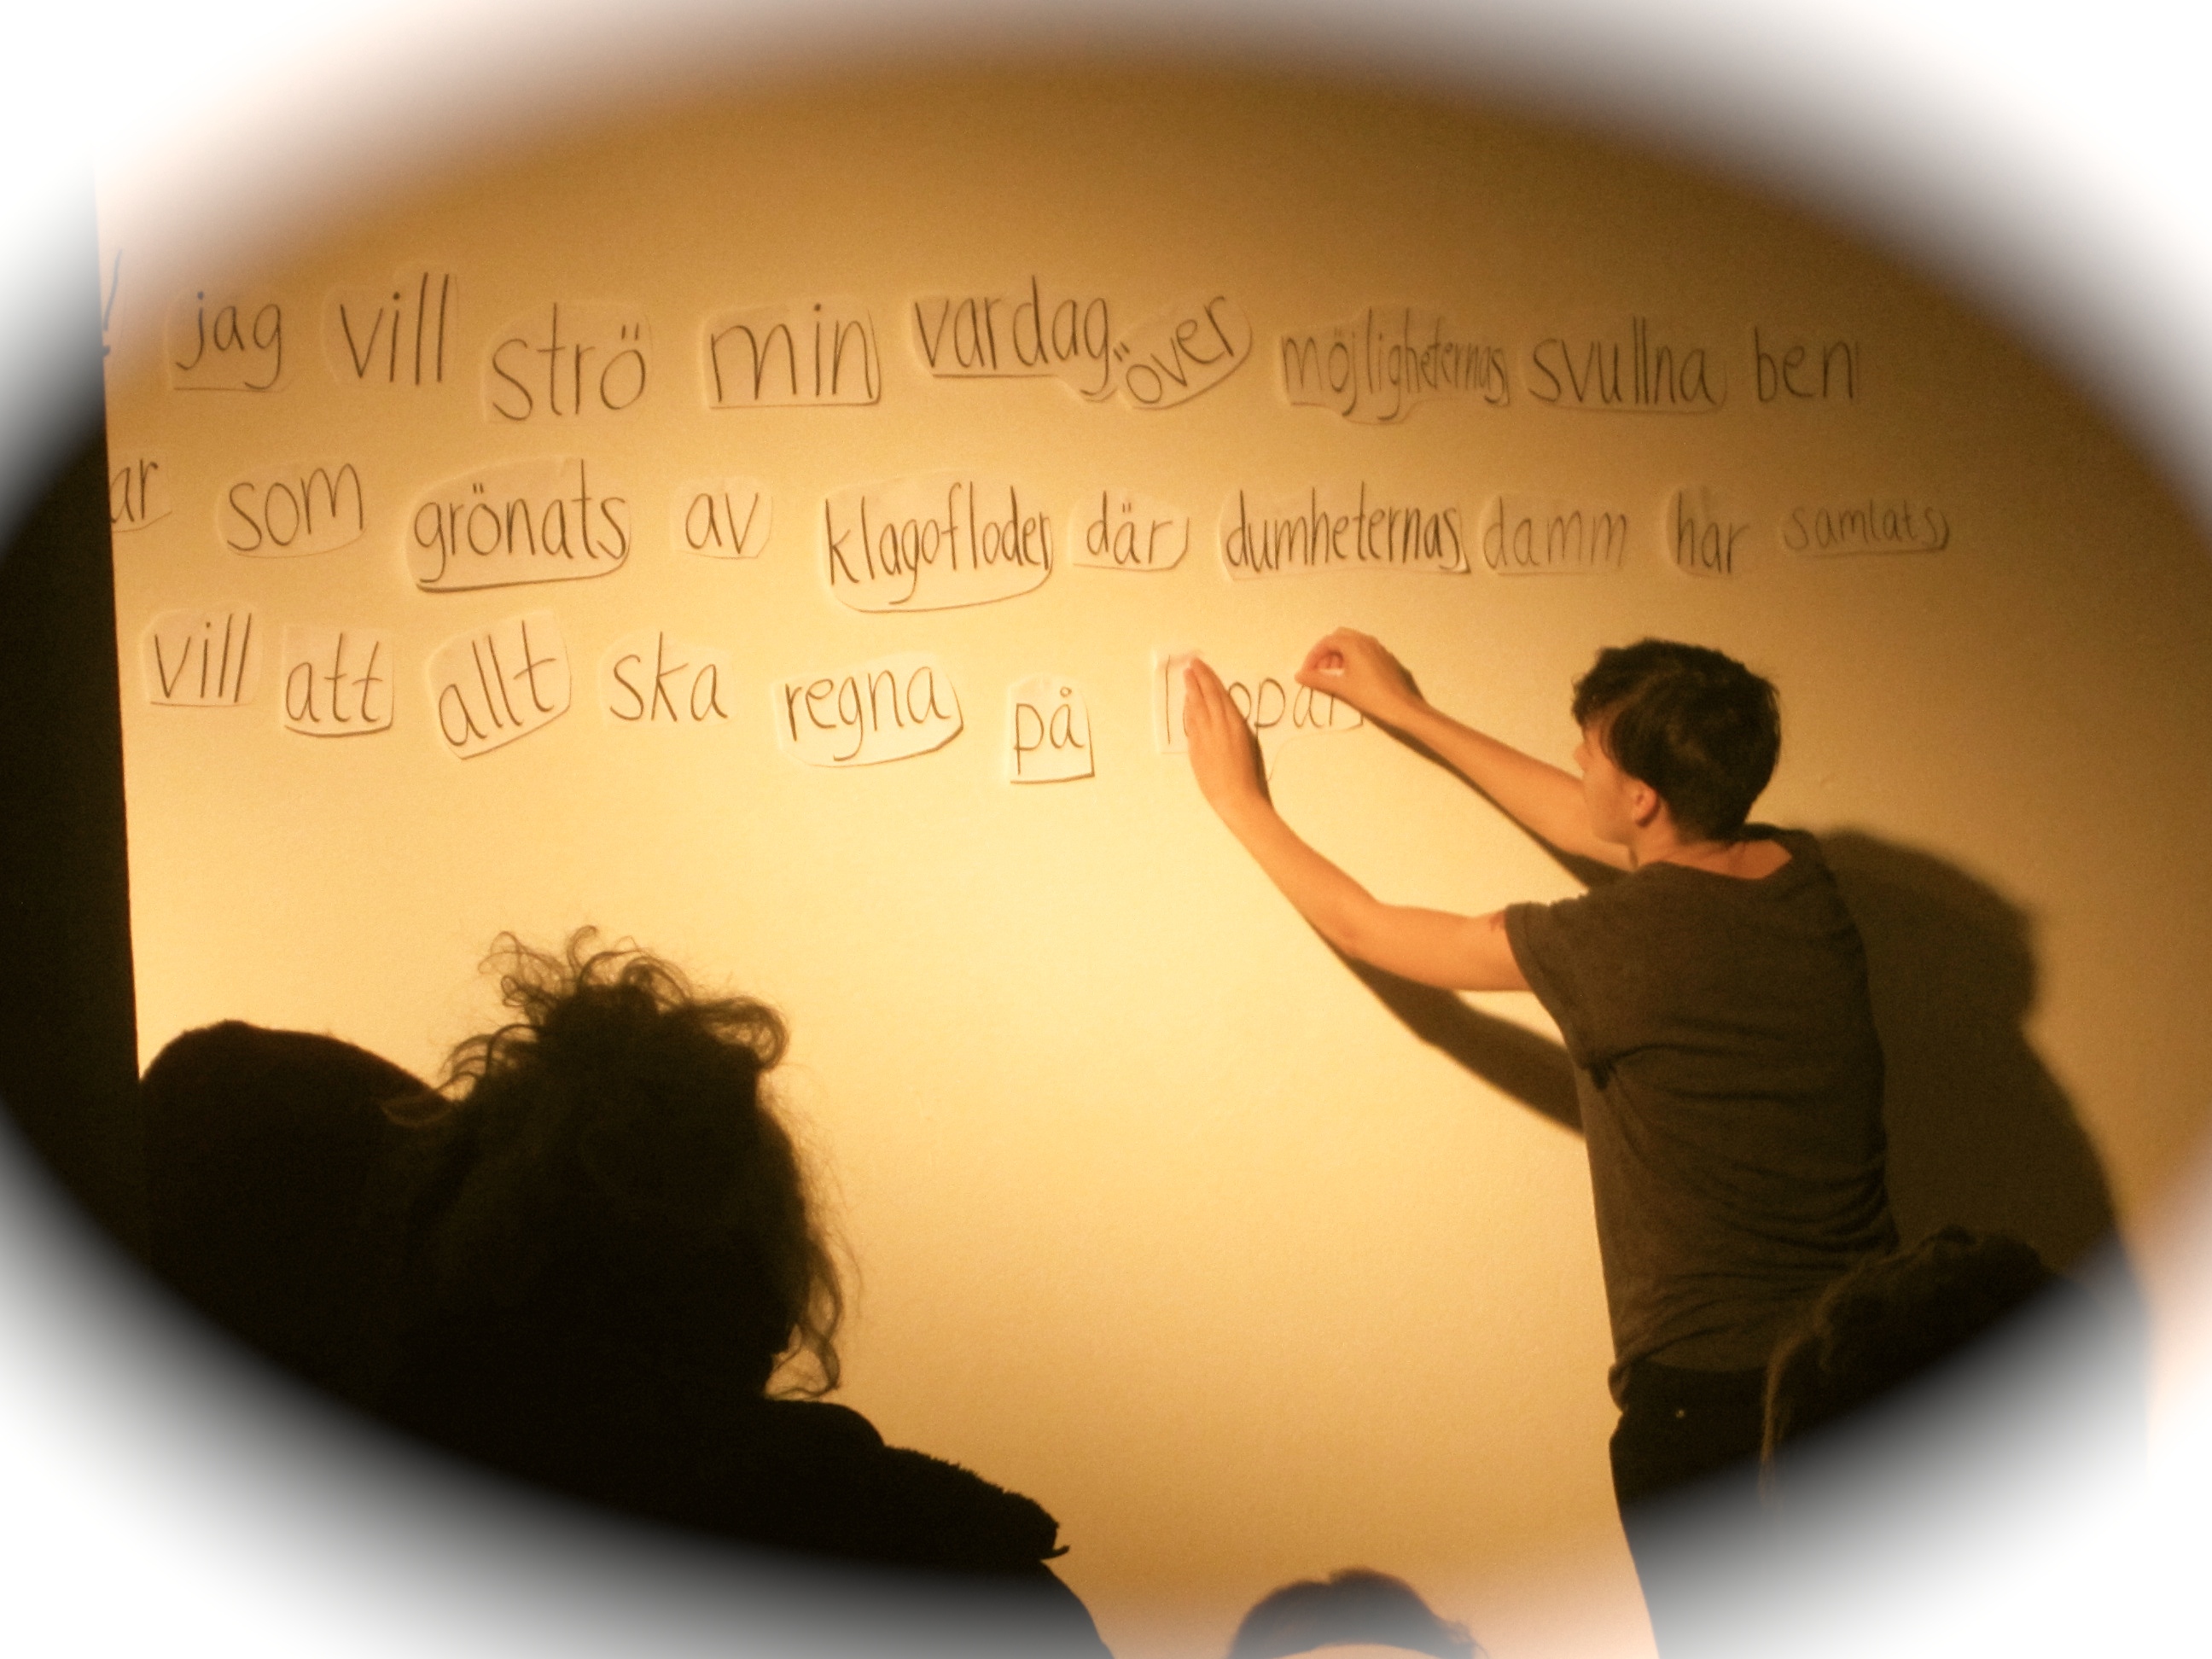 jag vill strö min vardag över möjligheternas svullna ben
som grönats av klagofloder där dumheternas damm har samlats
vill att allt ska regna på